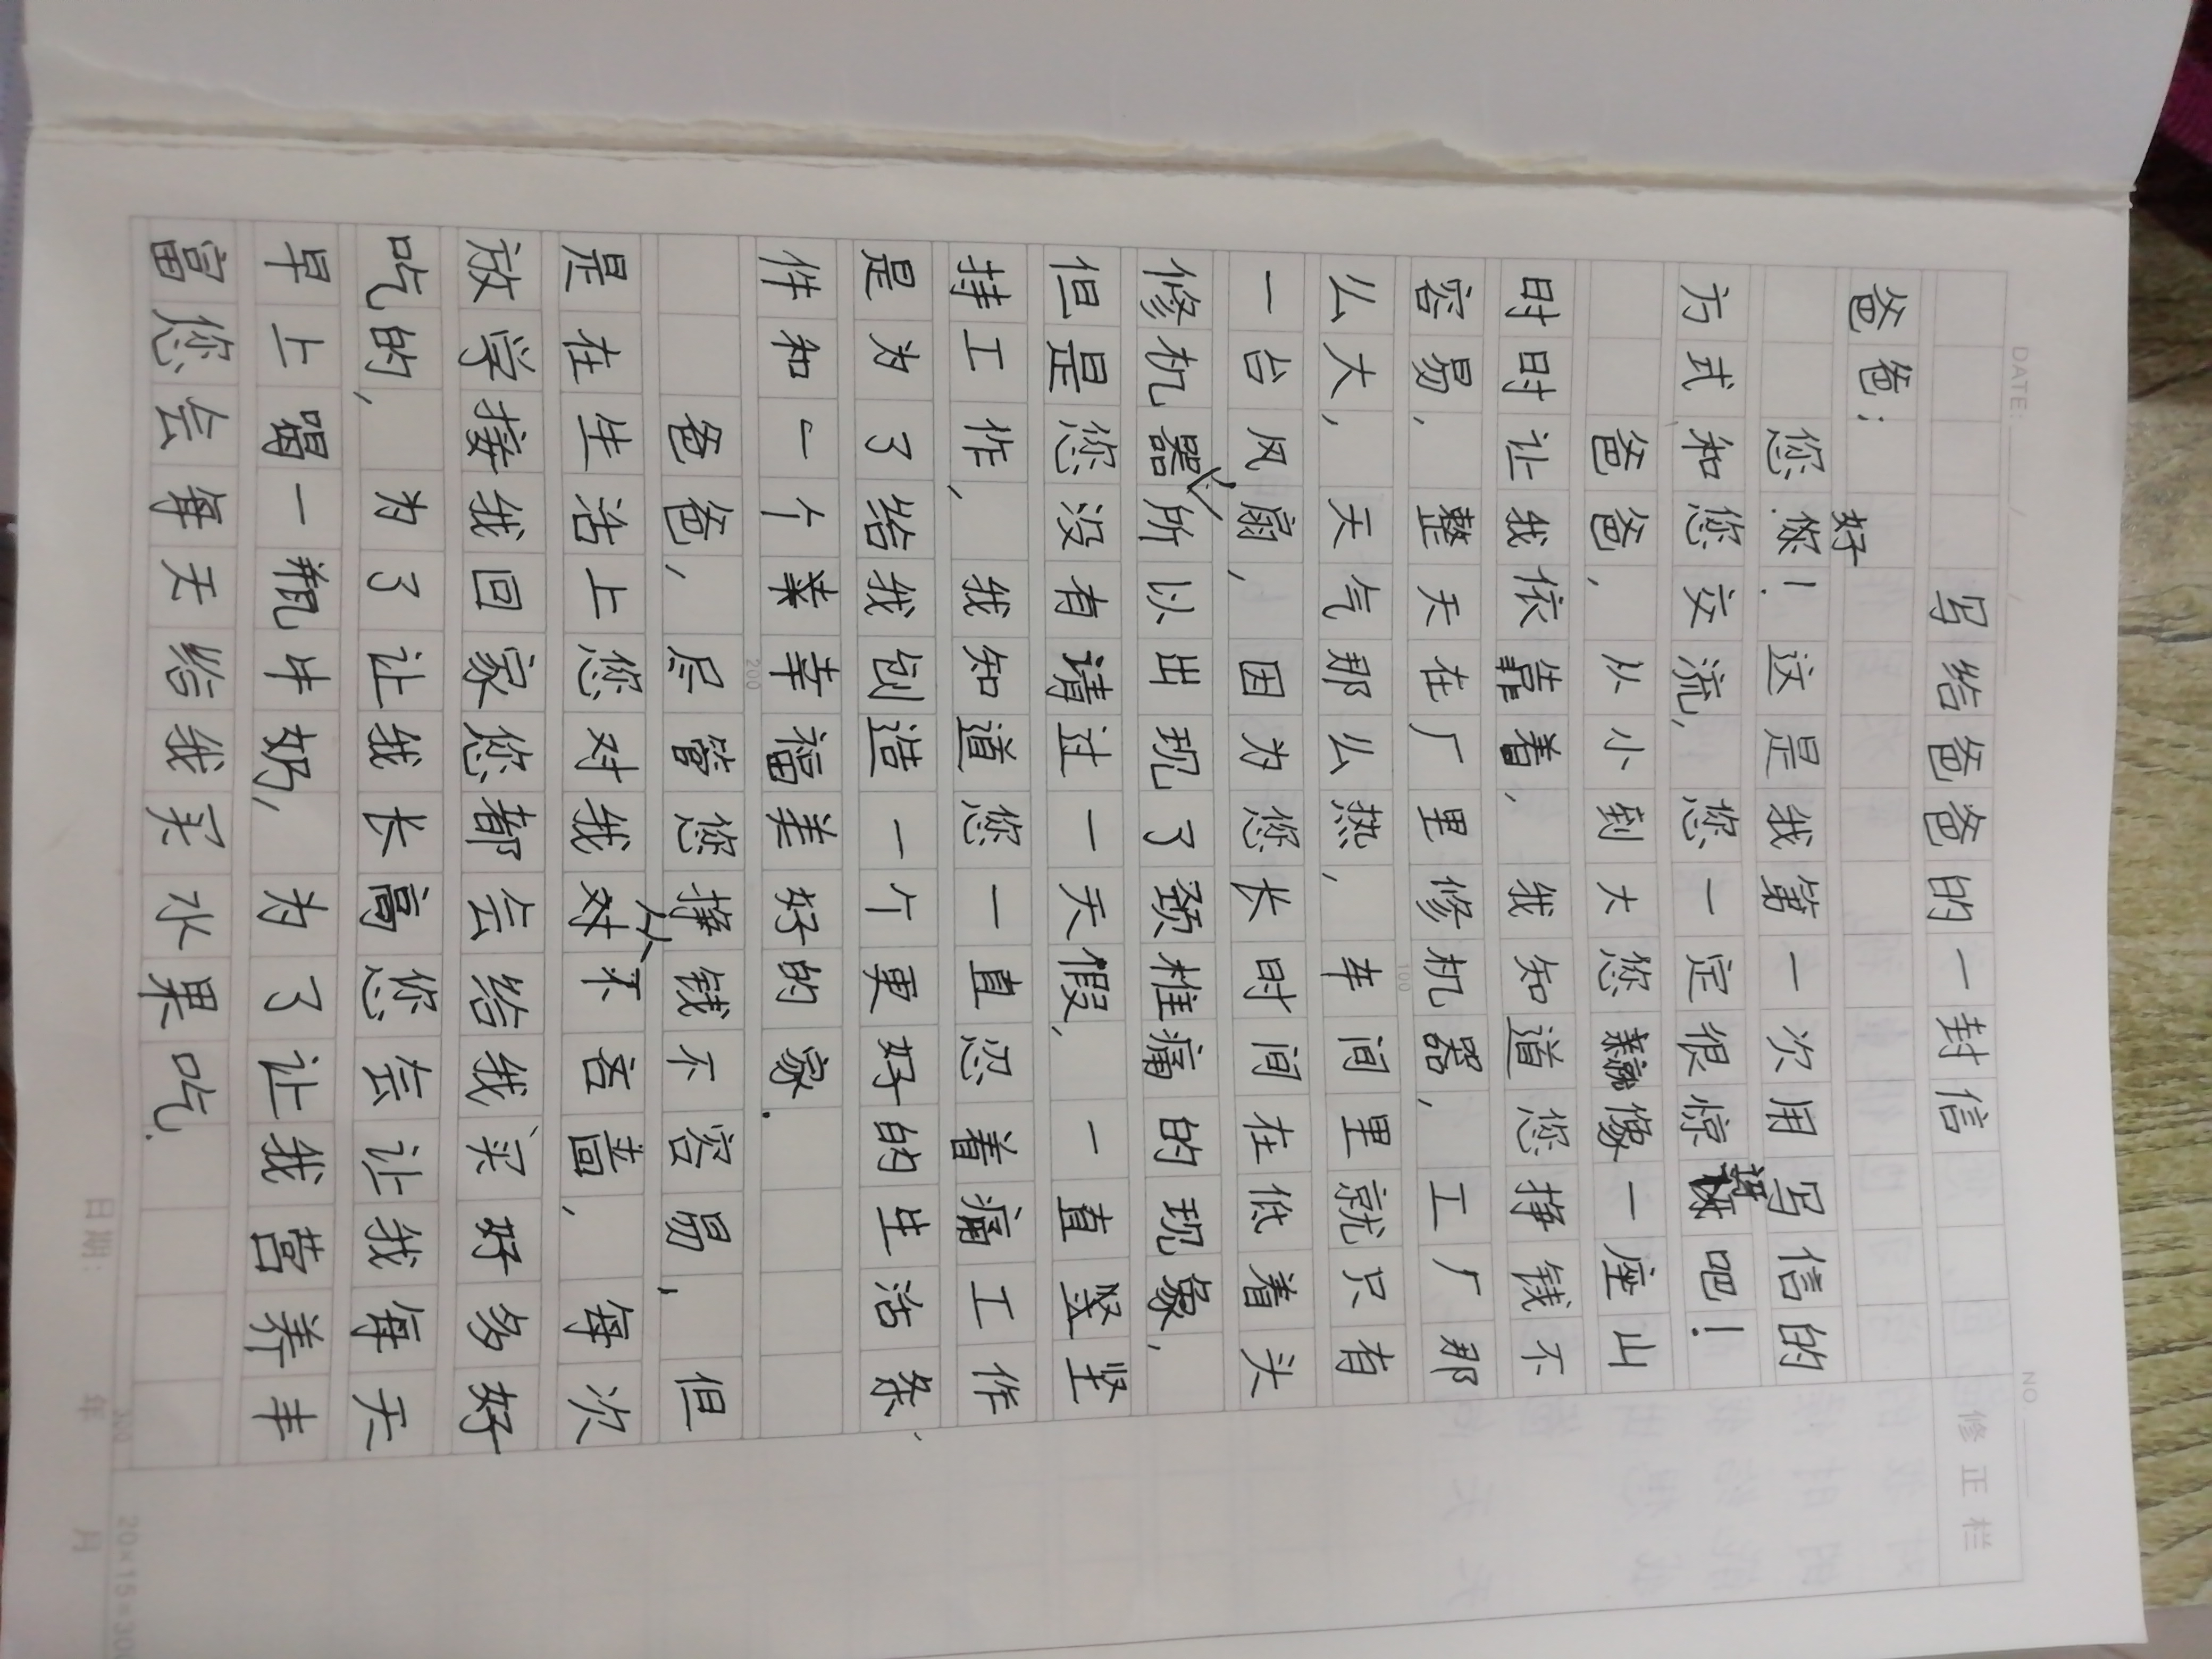 DATE: / /
NO
写给爸爸的一封信
修正栏
爸爸:
您好!这是我第一次用写信的
方式和您交流,您一定很惊讶吧!
爸爸,从小到大您像一座山
时时让我依靠着,我知道您挣钱不
容易,整天在厂里修机器,工厂那
100
么大,天气那么热,车间里就只有
一台风扇,因为您长时间在低着头
修机器,所以出现了颈椎痛的现象,
但是您没有请过一天假,一直坚坚
持工作,我知道您一直忍着痛工作
是为了给我创造一个更好的生活条
件和一个幸福美好的家.
200
爸爸,尽管您挣钱不容易,但
是在生活上您对我从不吝啬,每次
放学接我回家您都会给我买好多好
吃的,为了让我长高您会让我每天
早上喝一瓶牛奶,为了让我营养丰
富您会每天给我买水果吃.
300
日期: 年 月
20×15=300